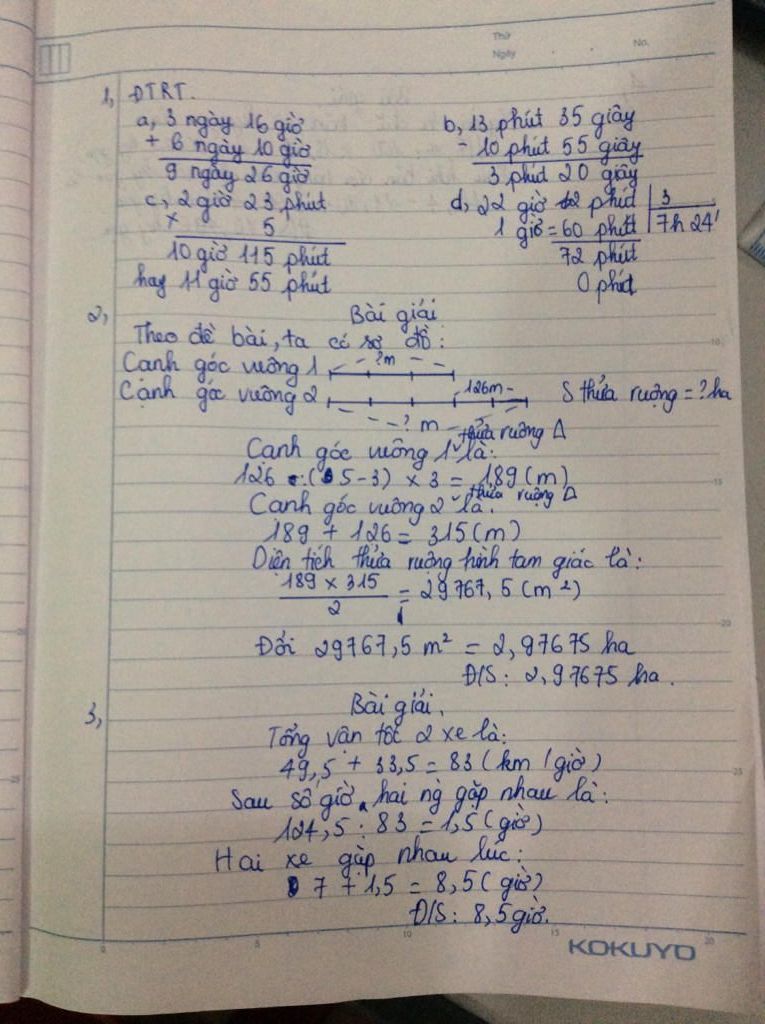 Thứ
Ngày
No.
1, ĐTRT.
a, 3 ngày 16 giờ
+ 6 ngày 10 giờ
9 ngày 26 giờ
b, 13 phút 35 giây
- 10 phút 55 giây
3 phút 20 giây
c, 2 giờ 23 phút
× 5
10 giờ 115 phút
hay 11 giờ 55 phút
d, 22 giờ 12 phút 3
1 giờ = 60 phút 7h 24'
72 phút
0 phút
2, Bài giải
Theo đề bài, ta có sơ đồ:
?m
Cạnh góc vuông 1
126m
Cạnh góc vuông 2 S thửa ruộng = ? ha
? m
Cạnh góc vuông 1 thửa ruộng Δ là:
126 : (5-3) × 3 = 189 (m)
Cạnh góc vuông 2 thửa ruộng Δ là:
189 + 126 = 315 (m)
Diện tích thửa ruộng hình tam giác là:
189 × 315
2
= 29767,5 (m²)
Đổi 29767,5 m² = 2,97675 ha
Đ/S: 2,97675 ha.
3, Bài giải.
Tổng vận tốc 2 xe là:
49,5 + 33,5 = 83 (km/giờ)
Sau số giờ hai ng gặp nhau là:
124,5 : 83 = 1,5 (giờ)
Hai xe gặp nhau lúc:
7 + 1,5 = 8,5 (giờ)
Đ/S: 8,5 giờ.
KOKUYO